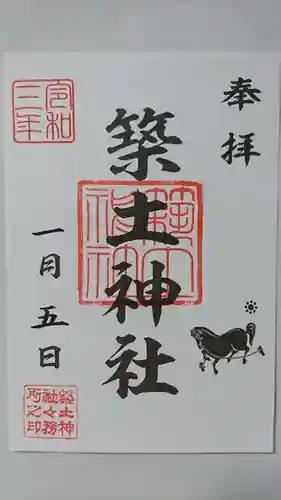 奉拝
築土神社
令和三年
一月五日
築土神社々務所之印